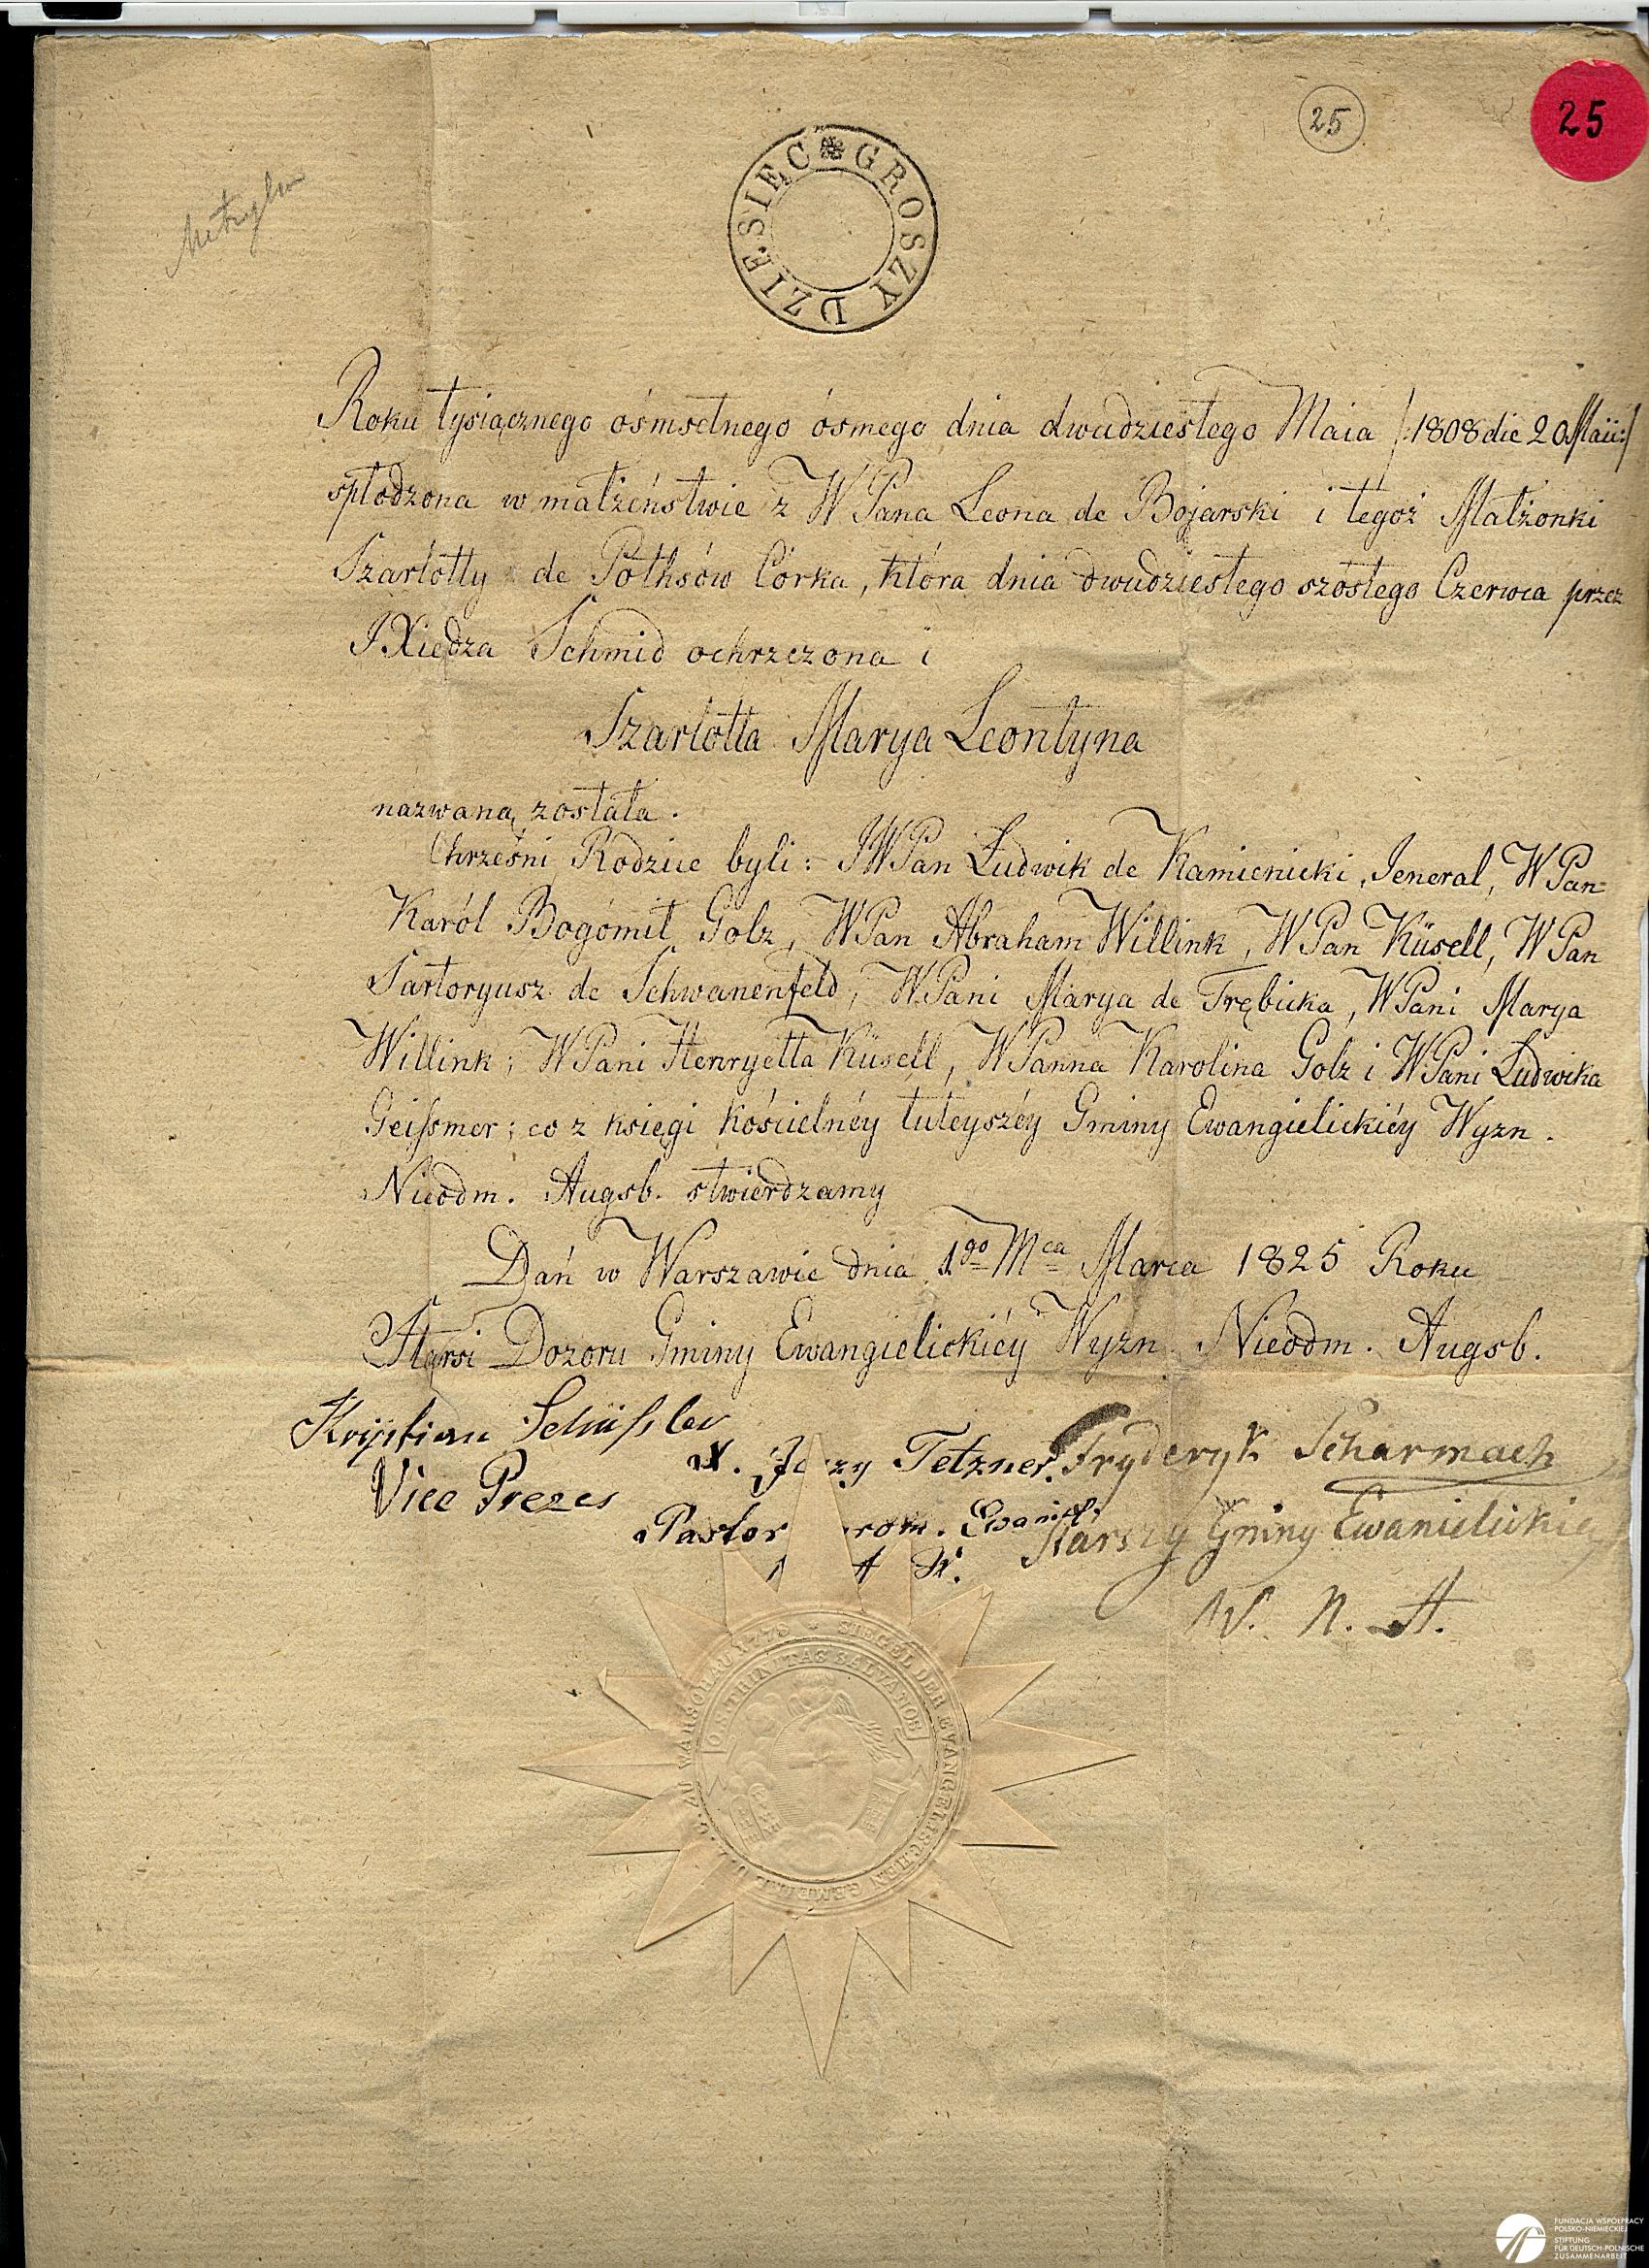 25
25
Metryka
GROSZY DZIESIĘC
Roku tysiącznego ośmsetnego ósmego dnia dwudziestego Maia /:1808 die 20 Maii:/
spłodzona w małżeństwie z W Pana Leona de Bojarski i tegoż Małżonki
Szarlotty de Pothsów Córka, która dnia dwudziestego szóstego Czerwca przez
JXiędza Schmid ochrzczona i
Szarlotta Marya Leontyna
nazwaną została.
Chrzestni Rodzice byli: JWPan Ludwik de Kamienicki, Jeneral, WPan
Karól Bogómił Golz, WPan Abraham Willink, WPan Küsell, WPan
Sartoryusz de Schwanenfeld, WPani Marya de Trębicka, WPani Marya
Willink; WPani Henryetta Küsell, WPanna Karolina Golz i WPani Ludwika
Geißmer; co z księgi kościelnéy tuteyszéy Gminy Ewangielickiéy Wyzn.
Nieodm. Augsb. stwierdzamy
Dań w Warszawie dnia 1go Mca Marca 1825 Roku
Starsi Dozoru Gminy Ewangielickiéy Wyzn. Nieodm. Augsb.
Krystian Schüßler
Vice Prezes
X. Jerzy Tetzner
Pastor Ewaniel.
A W.
Fryderyk Scharmach
Starszy Gminy Ewanielickiey
W. N. A.
SIEGEL DER EVANGELISCHEN GEMEINE U. A. C. ZU WARSCHAU 1778
O SANCTA TRINITAS SALVA NOS
FUNDACJA WSPÓŁPRACY
POLSKO-NIEMIECKIEJ
STIFTUNG
FÜR DEUTSCH-POLNISCHE
ZUSAMMENARBEIT